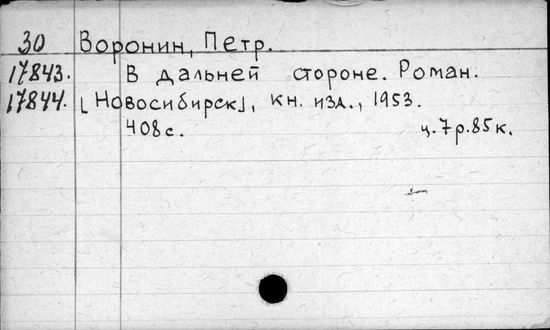 30 Воронин, Петр.
17843. В дальней стороне. Роман.
17844. [Новосибирск], кн. изд., 1953.
408 с. ц. 7 р. 85 к.